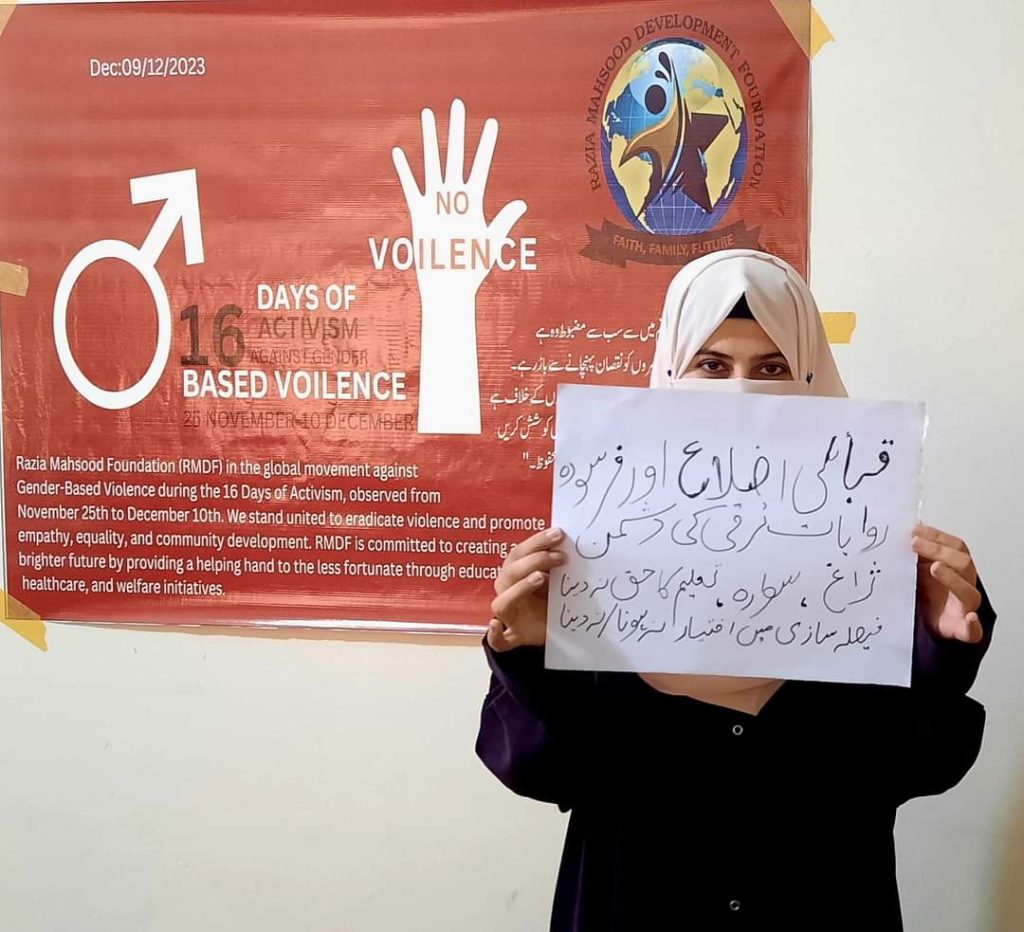 Dec:09/12/2023
RAZIA MAHSOOD DEVELOPMENT FOUNDATION
FAITH, FAMILY, FUTURE
NO
VOILENCE
16
DAYS OF
ACTIVISM
AGAINST GENDER
BASED VOILENCE
25 NOVEMBER-10 DECEMBER
میں سے سب سے مضبوط وہ ہے
کو نقصان پہنچانے سے باز رہے۔
کے خلاف ہے
کوشش کریں
Razia Mahsood Foundation (RMDF) in the global movement against
Gender-Based Violence during the 16 Days of Activism, observed from
November 25th to December 10th. We stand united to eradicate violence and promote
empathy, equality, and community development. RMDF is committed to creating a
brighter future by providing a helping hand to the less fortunate through educat
healthcare, and welfare initiatives.
قبائلی اضلاع اور فرسودہ
روایات ترقی کی دشمن
ژاغ، سوارہ، تعلیم کا حق نہ دینا
فیصلہ سازی میں اختیار نہ ہونا/نہ دینا